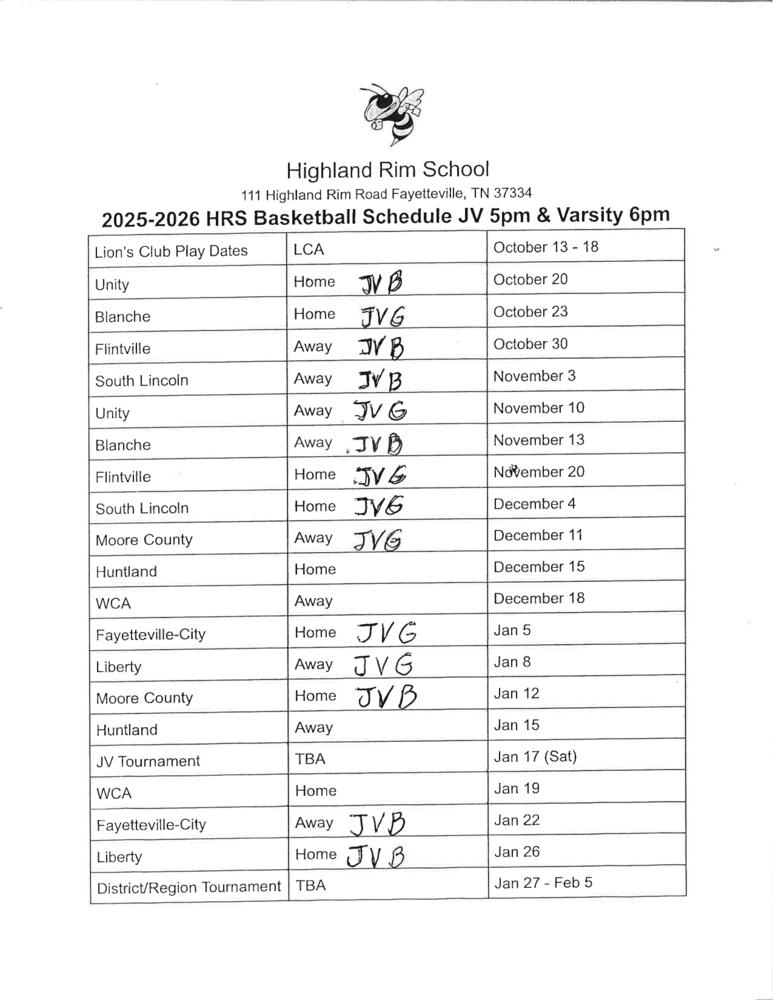 Highland Rim School
111 Highland Rim Road Fayetteville, TN 37334
2025-2026 HRS Basketball Schedule JV 5pm & Varsity 6pm
Lion's Club Play Dates LCA October 13 - 18
Unity Home JV B October 20
Blanche Home JVG October 23
Flintville Away JV B October 30
South Lincoln Away JV B November 3
Unity Away JV G November 10
Blanche Away JV B November 13
Flintville Home JV G November 20
South Lincoln Home JVG December 4
Moore County Away JVG December 11
Huntland Home December 15
WCA Away December 18
Fayetteville-City Home JVG Jan 5
Liberty Away JVG Jan 8
Moore County Home JVB Jan 12
Huntland Away Jan 15
JV Tournament TBA Jan 17 (Sat)
WCA Home Jan 19
Fayetteville-City Away JVB Jan 22
Liberty Home JV B Jan 26
District/Region Tournament TBA Jan 27 - Feb 5